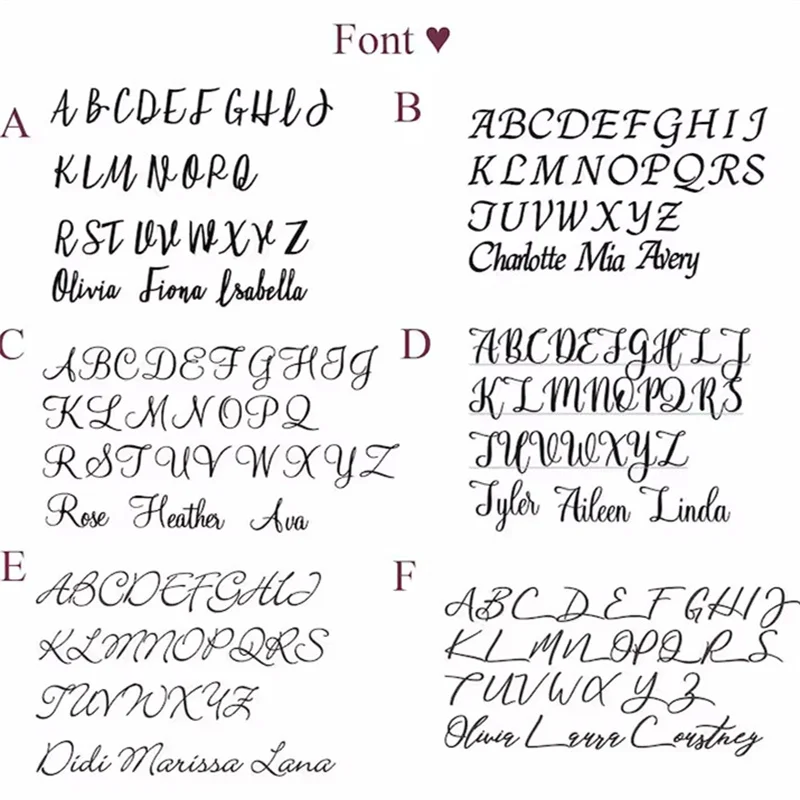 Font ♥
A
A B C D E F G H I J
K L M N O P Q
R S T U V W X Y Z
Olivia Fiona Isabella
B
A B C D E F G H I J
K L M N O P Q R S
T U V W X Y Z
Charlotte Mia Avery
C
A B C D E F G H I J
K L M N O P Q
R S T U V W X Y Z
Rose Heather Ava
D
A B C D E F G H I J
K L M N O P Q R S
T U V W X Y Z
Tyler Aileen Linda
E
A B C D E F G H I J
K L M N O P Q R S
T U V W X Y Z
Didi Marissa Lana
F
A B C D E F G H I J
K L M N O P Q R S
T U V W X Y Z
Olivia Laura Courtney